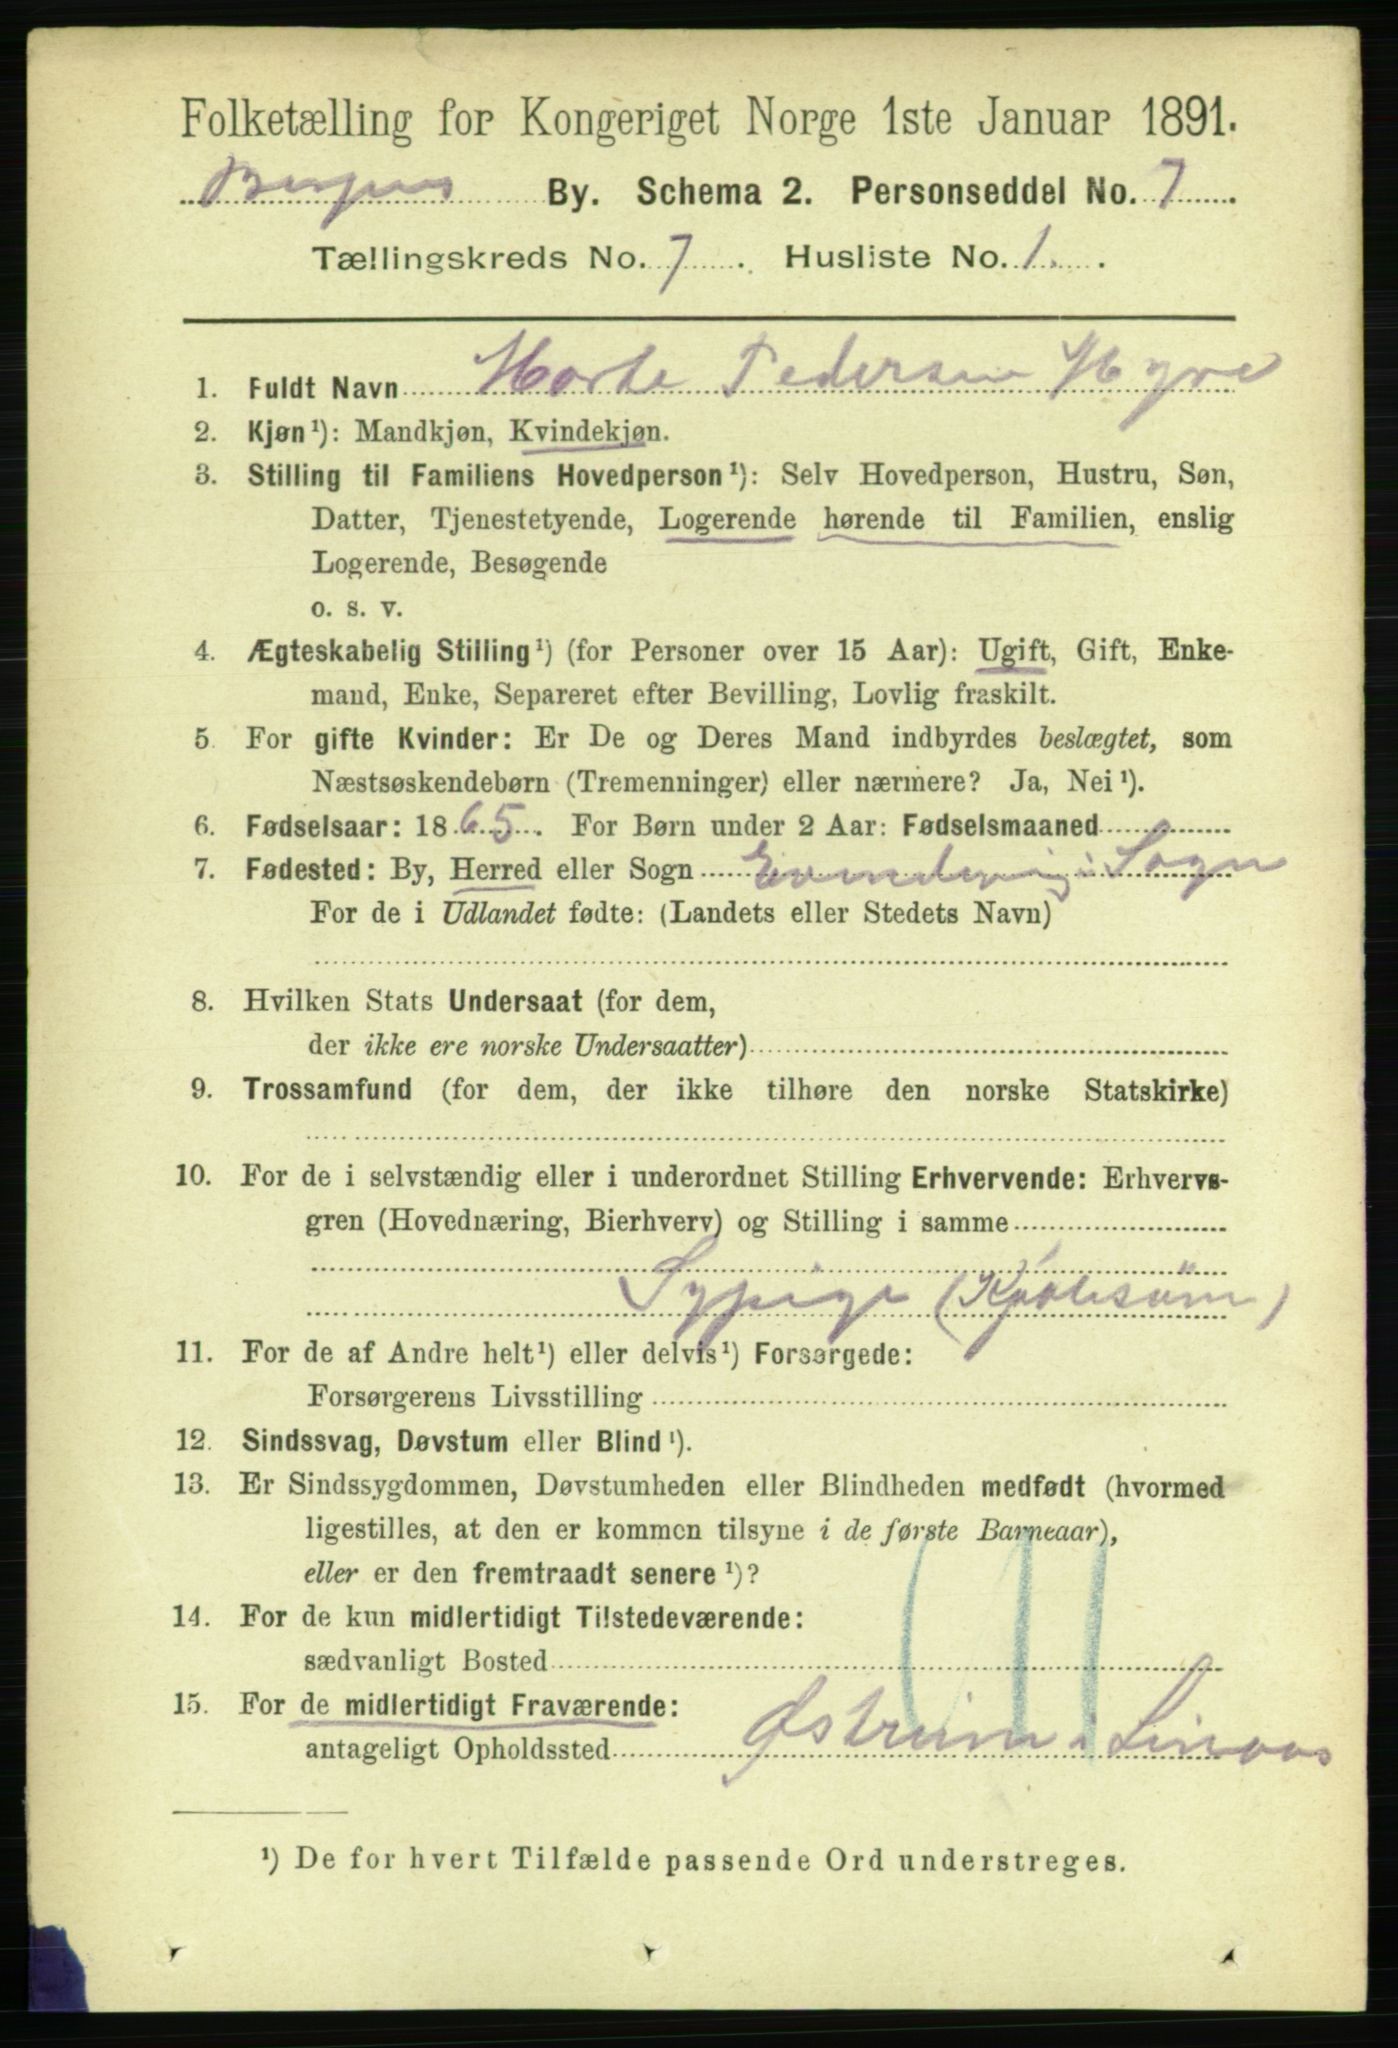 Folketælling for Kongeriget Norge 1ste Januar 1891.
Bergens By. Schema 2. Personseddel No. 7
Tællingskreds No. 7. Husliste No. 1.
1. Fuldt Navn Marte Pedersen Hyve
2. Kjøn¹): Mandkjøn, Kvindekjøn.
3. Stilling til Familiens Hovedperson¹): Selv Hovedperson, Hustru, Søn,
Datter, Tjenestetyende, Logerende hørende til Familien, enslig
Logerende, Besøgende
o. s. v.
4. Ægteskabelig Stilling¹) (for Personer over 15 Aar): Ugift, Gift, Enke-
mand, Enke, Separeret efter Bevilling, Lovlig fraskilt.
5. For gifte Kvinder: Er De og Deres Mand indbyrdes beslægtet, som
Næstsøskendebørn (Tremenninger) eller nærmere? Ja, Nei¹).
6. Fødselsaar: 1865. For Børn under 2 Aar: Fødselsmaaned
7. Fødested: By, Herred eller Sogn Evindvig i Sogn
For de i Udlandet fødte: (Landets eller Stedets Navn)
8. Hvilken Stats Undersaat (for dem,
der ikke ere norske Undersaatter)
9. Trossamfund (for dem, der ikke tilhøre den norske Statskirke)
10. For de i selvstændig eller i underordnet Stilling Erhvervende: Erhvervs-
gren (Hovednæring, Bierhverv) og Stilling i samme
Sypige (Kjolesöm)
11. For de af Andre helt¹) eller delvis¹) Forsørgede:
Forsørgerens Livsstilling
12. Sindssvag, Døvstum eller Blind¹).
13. Er Sindssygdommen, Døvstumheden eller Blindheden medfødt (hvormed
ligestilles, at den er kommen tilsyne i de første Barneaar),
eller er den fremtraadt senere¹)?
14. For de kun midlertidigt Tilstedeværende:
sædvanligt Bosted
15. For de midlertidigt Fraværende:
antageligt Opholdssted Østreim i Linaas
¹) De for hvert Tilfælde passende Ord understreges.